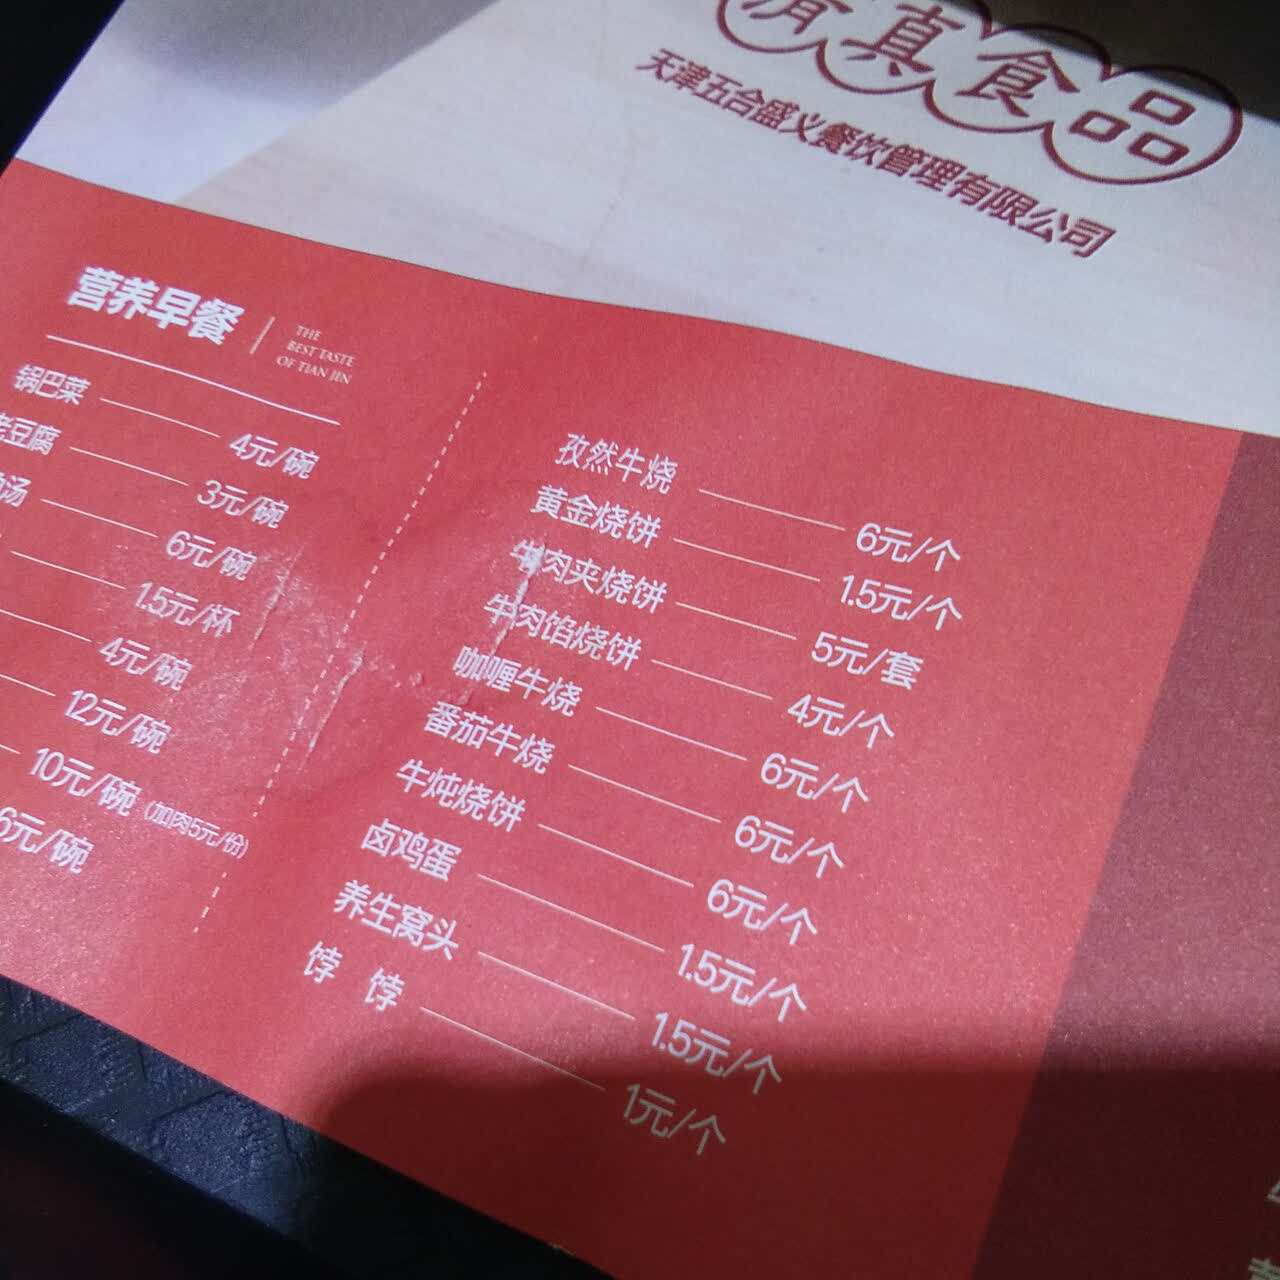 清真食品
天津五合盛义餐饮管理有限公司
营养早餐
THE
BEST TASTE
OF TIAN JIN
锅巴菜 4元/碗
老豆腐 3元/碗
汤 6元/碗
1.5元/杯
4元/碗
12元/碗
10元/碗 (加肉5元/份)
6元/碗
孜然牛烧 6元/个
黄金烧饼 1.5元/个
牛肉夹烧饼 5元/套
牛肉馅烧饼 4元/个
咖喱牛烧 6元/个
番茄牛烧 6元/个
牛炖烧饼 6元/个
卤鸡蛋 1.5元/个
养生窝头 1.5元/个
饽饽 1元/个